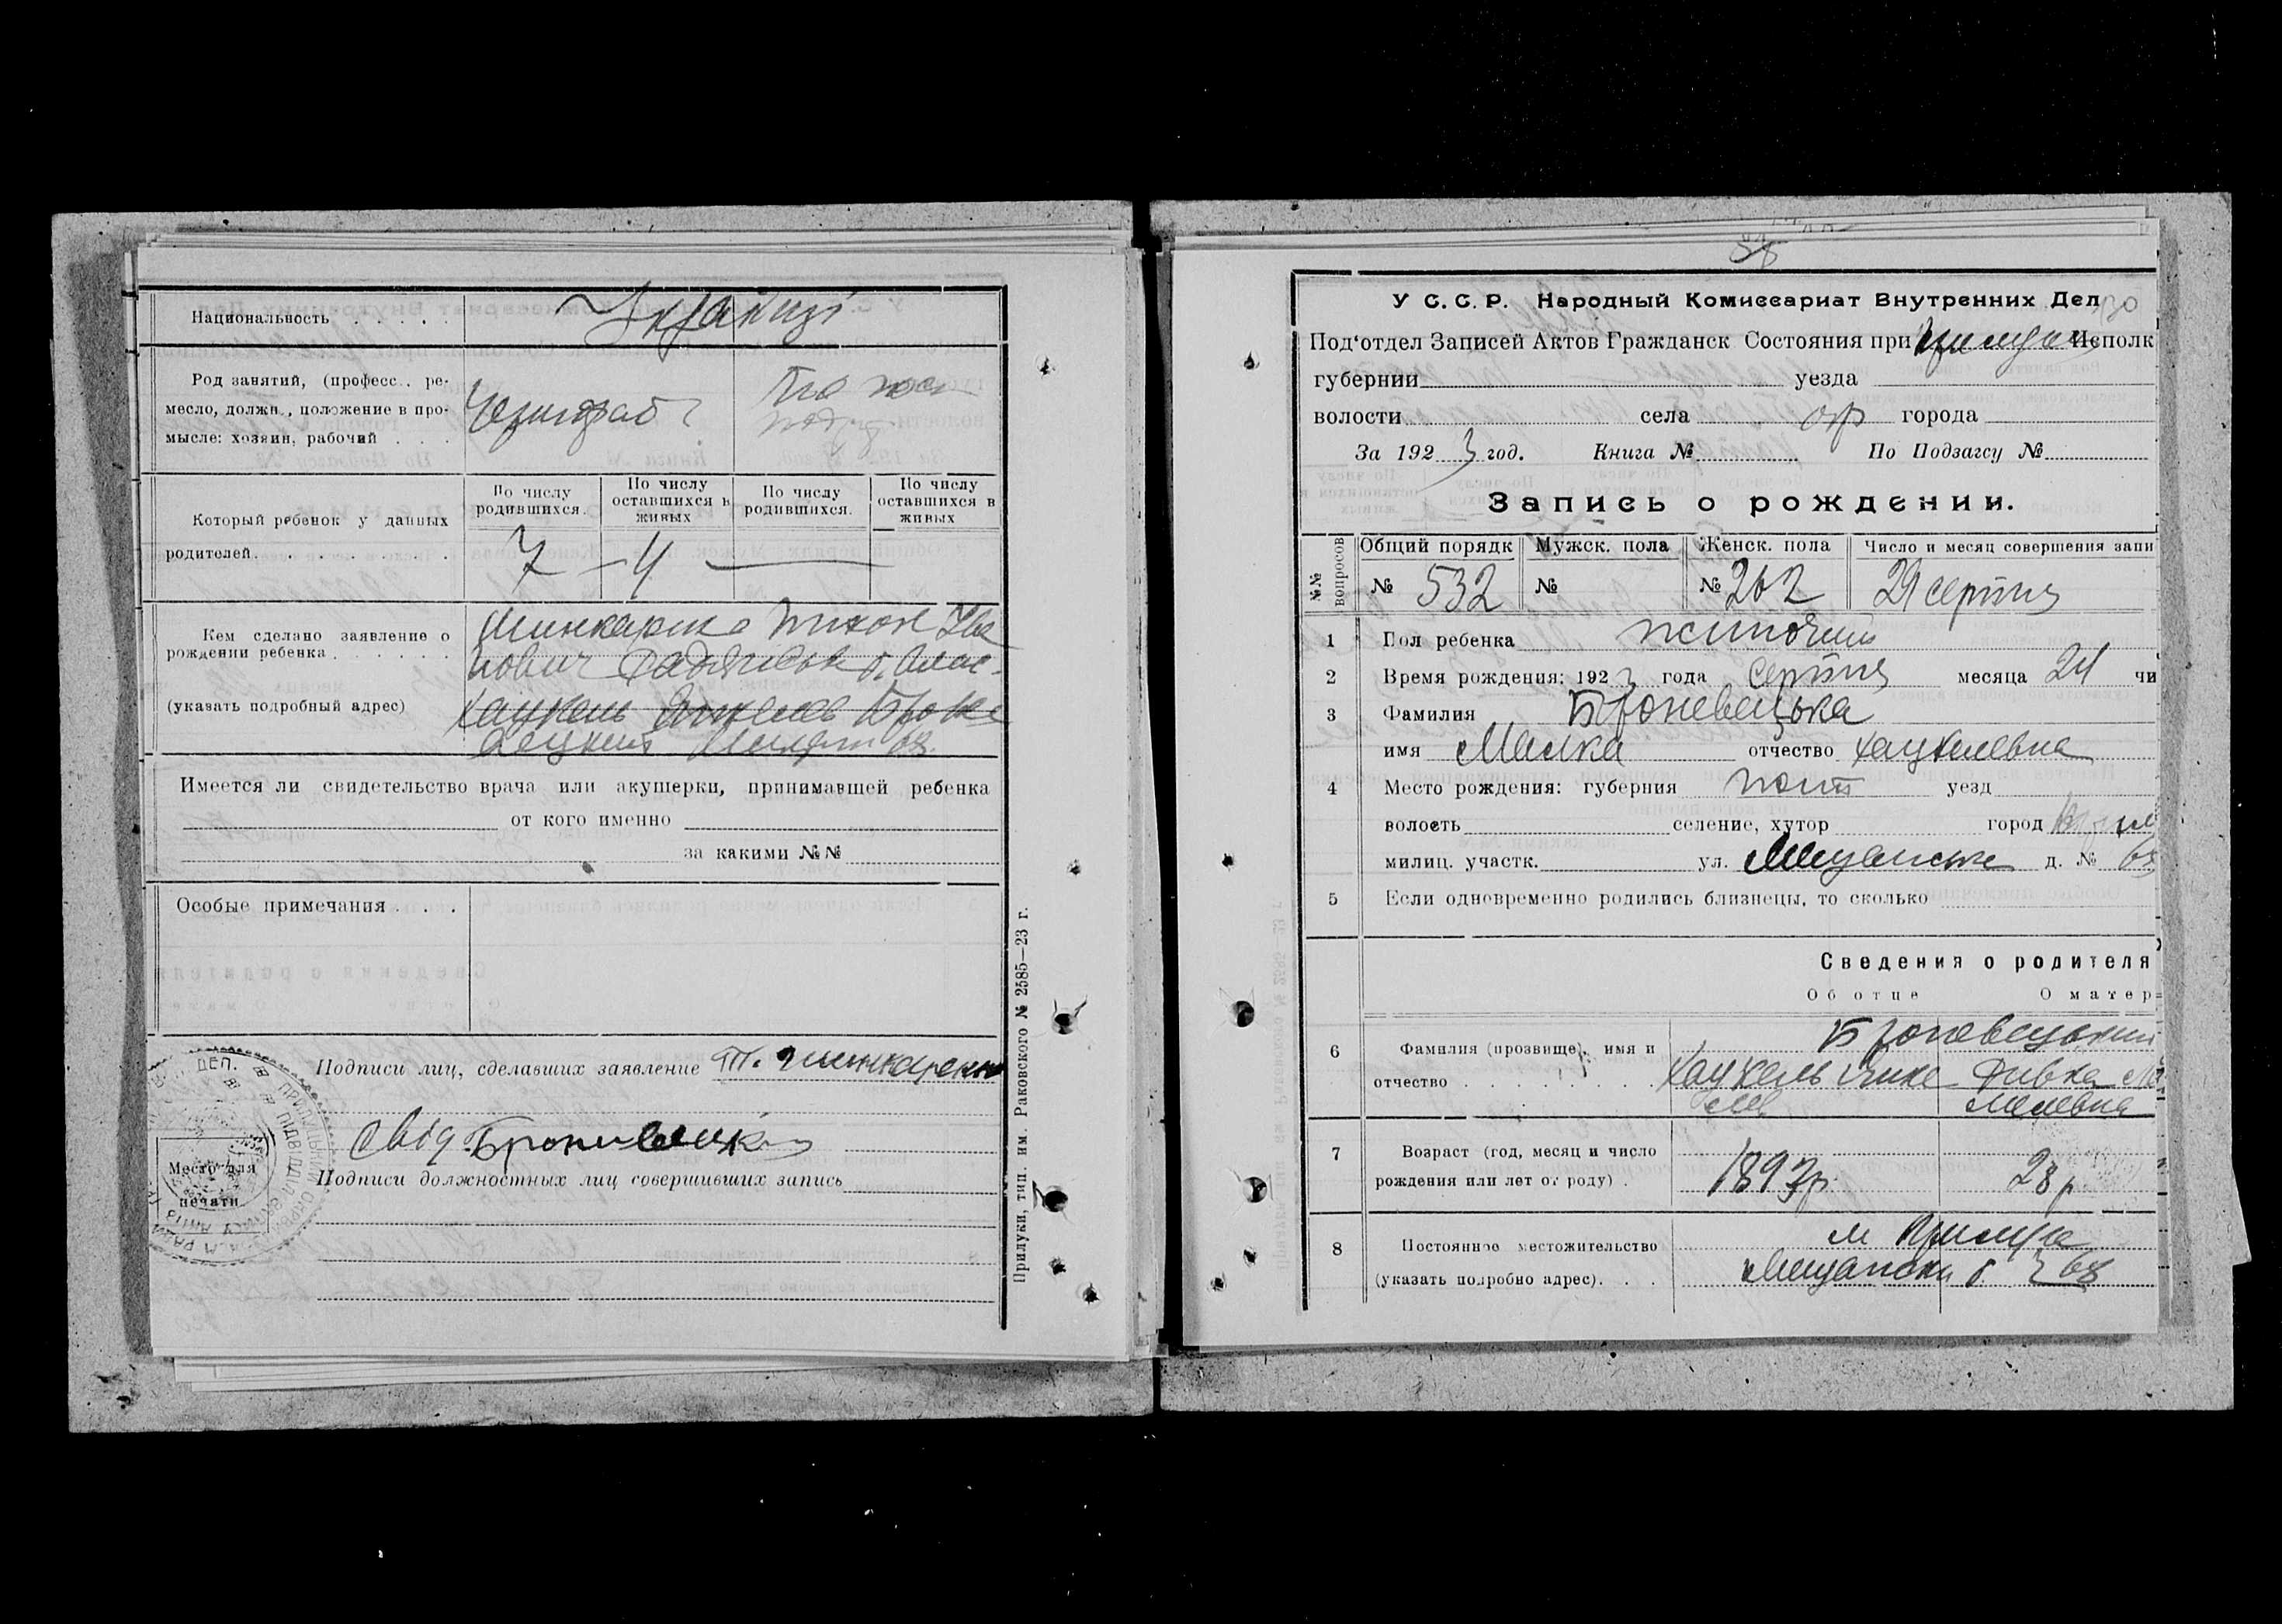 Национальность . . . . . Українці
Род занятий, (професс., ре-
месло, должн., положение в про-
мысле: хозяин, рабочий . . .
По числу родившихся. По числу оставшихся в живых По числу родившихся. По числу оставшихся в живых
Который ребенок у данных
родителей. . . . . . . . 7 — 4 —
Кем сделано заявление о
рождении ребенка . . . . . .
(указать подробный адрес)
Шинкаренко Тихон Іва
нович
Хацкель Броне
вецкий 68
Имеется ли свидетельство врача или акушерки, принимавшей ребенка
от кого именно
за какими №№
Особые примечания . . .
Подписи лиц, сделавших заявление Т. Шинкаренко
свід. Броневицкий
Место для
печати
Подписи должностных лиц совершивших запись
Прилуки, тип. им. Раковского № 2585—23 г.
У С. С. Р. Народный Комиссариат Внутренних Дел
Под‘отдел Записей Актов Гражданск Состояния при Прилуцьк Исполк
губернии уезда
волости села окр города
За 1923 год. Книга № По Подзагсу №
Запись о рождении.
№№ вопросов Общий порядк Мужск. пола Женск. пола Число и месяц совершения запи
№ 532 № № 262 29 серпня
1 Пол ребенка жіночий
2 Время рождения: 1923 года серпня месяца 24 чи
3 Фамилия Броневецька
имя Малка отчество Хацкелевна
4 Место рождения: губерния Полт уезд
волость селение, хутор город Прил
милиц. участк. ул. Міщанська д. № 68
5 Если одновременно родились близнецы, то сколько
Сведения о родителя
Об отце О матер
Броневецький
6 Фамилия (прозвище), имя и
отчество . . . . . . . . Хацкель Ривка
7 Возраст (год, месяц и число
рождения или лет от роду) . 1893р. 28 р
8 Постоянное местожительство м Прилука
(указать подробно адрес). . . Міщанська 68